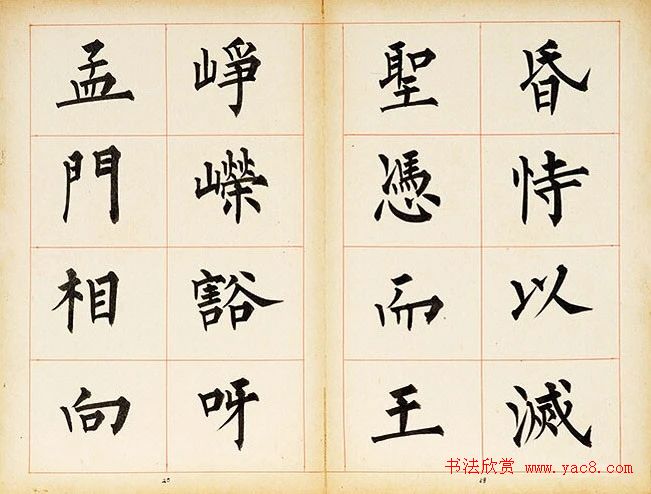 昏恃以滅
聖憑而王
崢嶸豁呀
孟門相向
书法欣赏 www.yac8.com